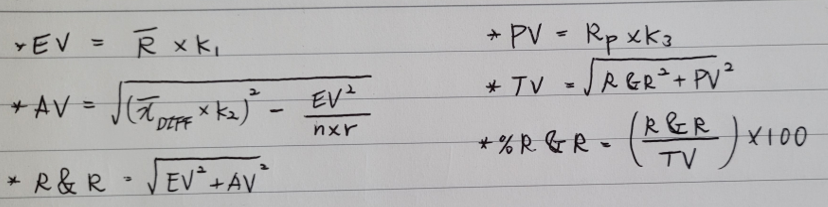 * EV = R̅ × K₁
* AV = √((x̅_DIFF × K₂)² - EV²/(n×r))
* R&R = √(EV² + AV²)
* PV = Rₚ × K₃
* TV = √(R&R² + PV²)
* %R&R = (R&R/TV) × 100